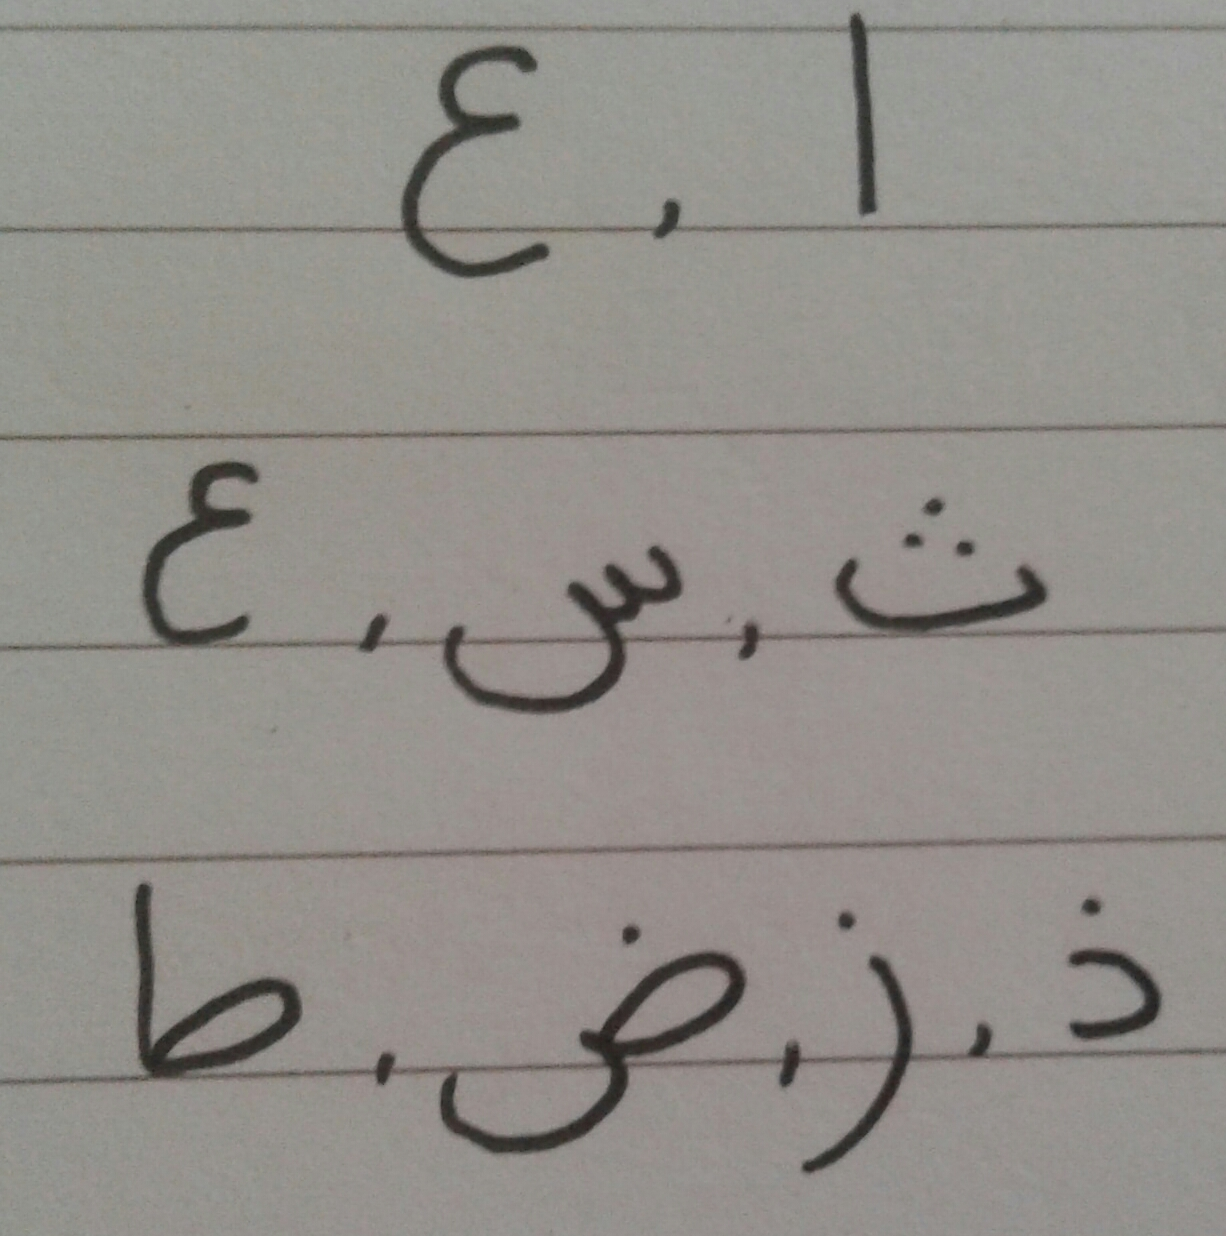 ا , ع
ث , س , ع
ذ , ز , ض , ط